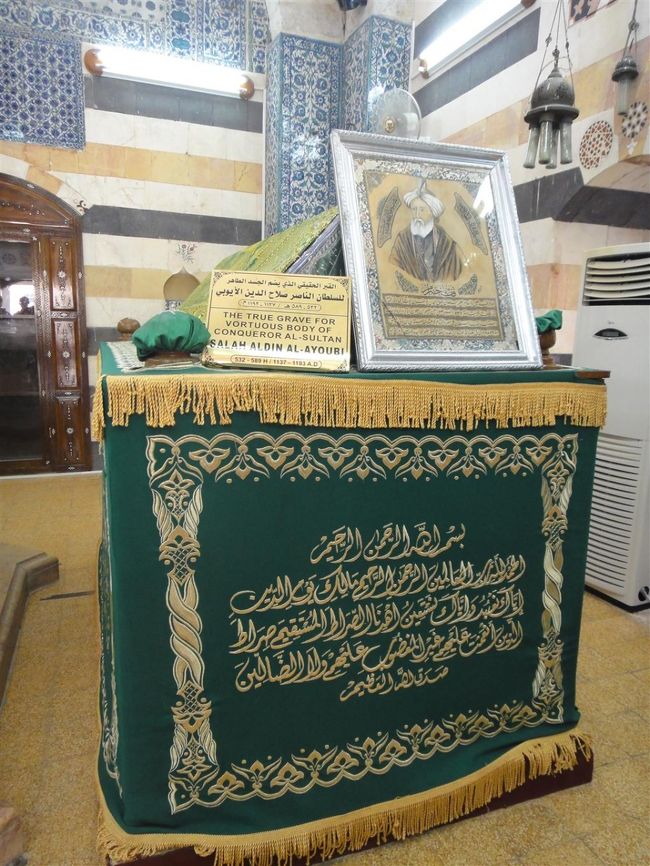 القبر الحقيقي الذي يضم الجسد الطاهر
للسلطان الناصر صلاح الدين الايوبي
٥٣٢ - ٥٨٩ هـ / ١١٣٧ - ١١٩٣ م
THE TRUE GRAVE FOR
VORTUOUS BODY OF
CONQUEROR AL-SULTAN
SALAH ALDIN AL-AYOUBI
532 - 589 H / 1137 - 1193 A.D
بسم الله الرحمن الرحيم
الحمد لله رب العالمين الرحمن الرحيم مالك يوم الدين
إياك نعبد وإياك نستعين اهدنا الصراط المستقيم صراط
الذين أنعمت عليهم غير المغضوب عليهم ولا الضالين
صدق الله العظيم